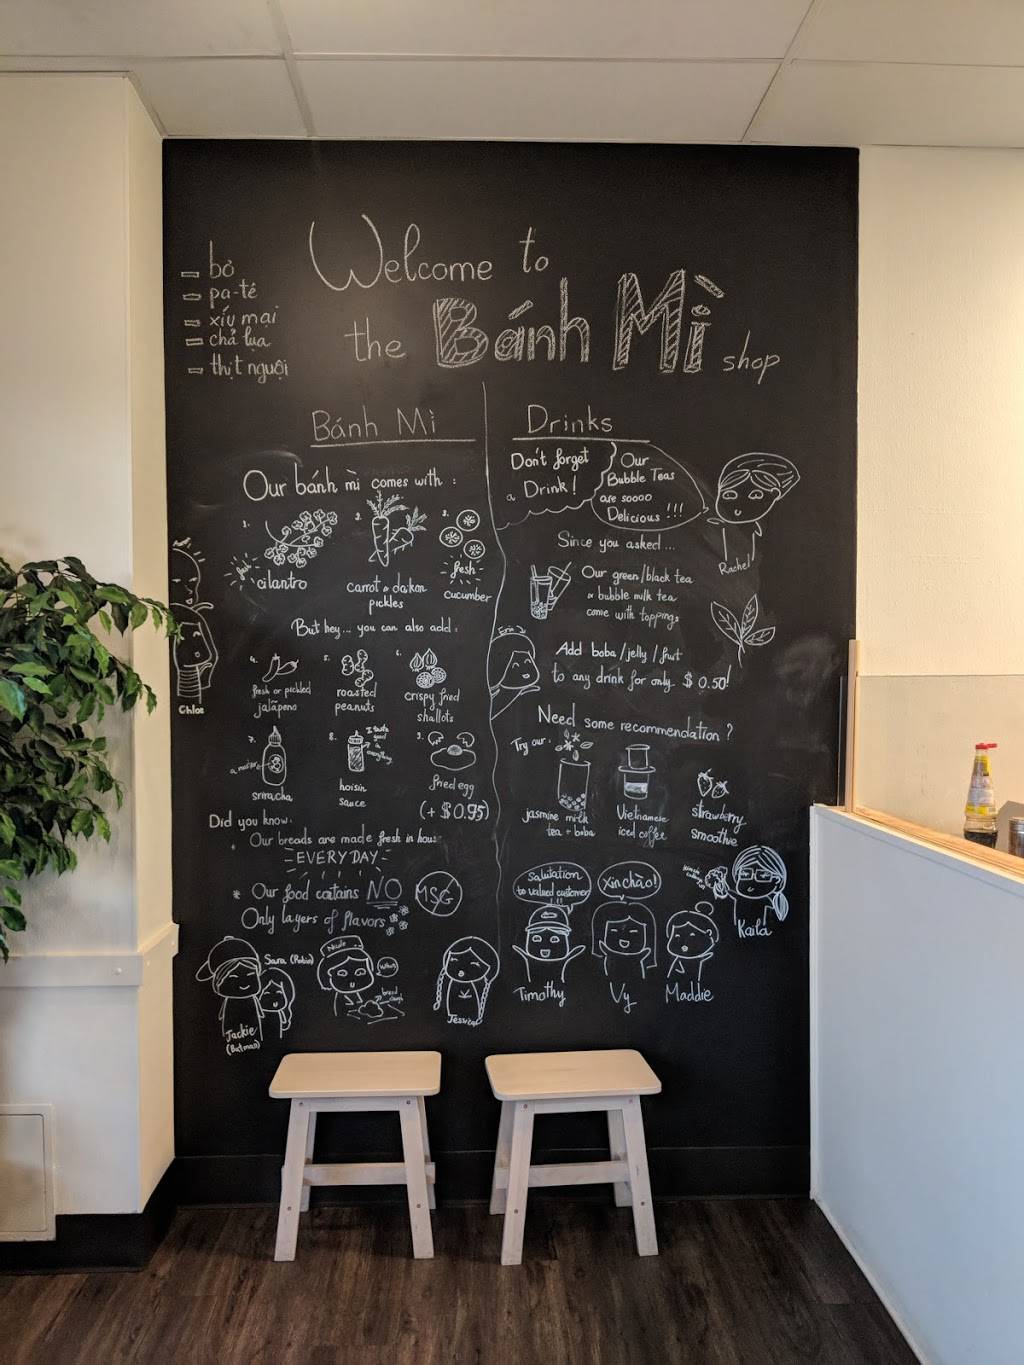 Welcome to
the Bánh Mì shop
- bơ
- pa-tê
- xíu mại
- chả lụa
- thịt nguội
Bánh Mì
Our bánh mì comes with :
1.
2.
3.
fresh
cilantro
carrot & daikon
pickles
fresh
cucumber
But hey... you can also add:
4.
5.
6.
fresh or pickled
jalapeno
roasted
peanuts
crispy fried
shallots
7.
8.
9.
sriracha
I taste
good
everything
hoisin
sauce
fried egg
(+ $0.95)
Did you know:
Our breads are made fresh in house
EVERYDAY
* Our food contains NO MSG
Only layers of flavors
Drinks
Don't forget
a Drink!
Our
Bubble Teas
are soooo
Delicious !!!
Rachel
Since you asked...
Our green/black tea
or bubble milk tea
come with toppings
Erin
Add boba/jelly/fruit
to any drink for only $0.50!
Need some recommendation?
Try our:
jasmine milk
tea + boba
Vietnamese
iced coffee
strawberry
smoothie
Salutation
to valued customer
!!!
Xin chào!
Chloe
Sara (Robin)
Jackie
(Batman)
Nicole
bread
dough
Jessica
Timothy
Vy
Maddie
Kaila